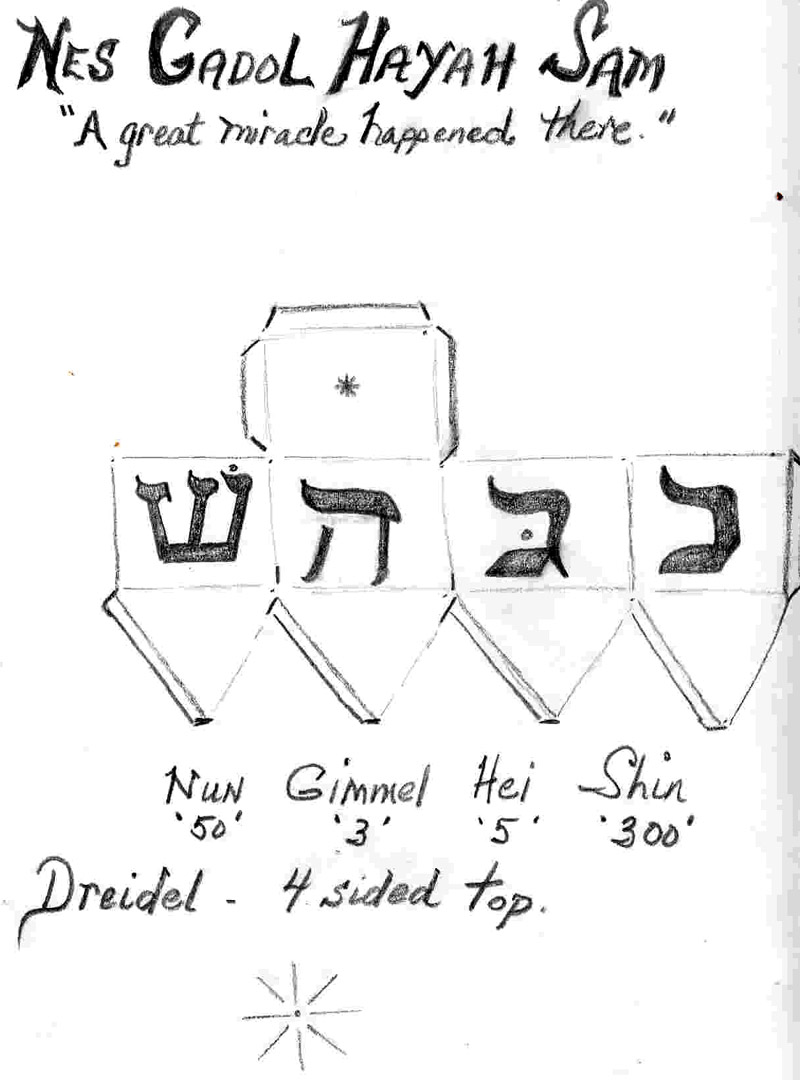 NES GADOL HAYAH SAM
"A great miracle happened there."
נ גּ ה שׁ
Nun Gimmel Hei Shin
'50' '3' '5' '300'
Dreidel - 4 sided top.